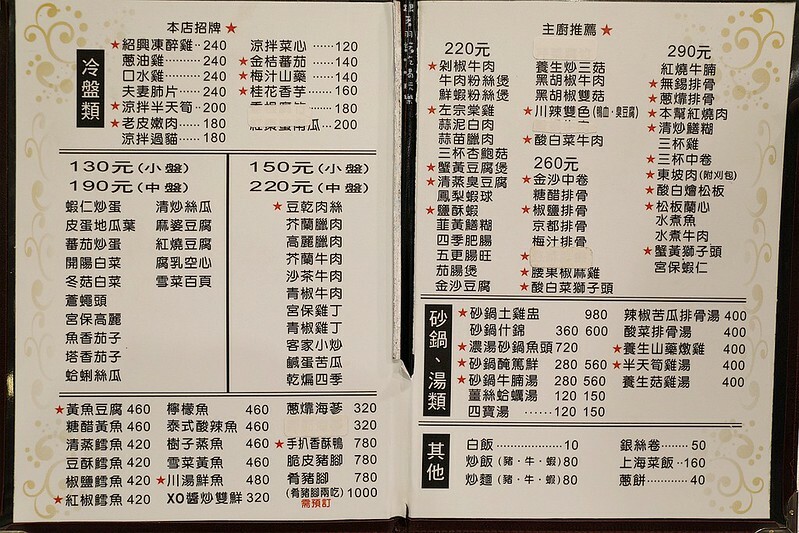 本店招牌★
冷盤類
★紹興凍醉雞‥240
蔥油雞………240
口水雞………240
夫妻肺片……240
★涼拌半天筍‥200
★老皮嫩肉……180
涼拌過貓……180
涼拌菜心……120
★金桔蕃茄……140
★梅汁山藥……140
★桂花香芋……160
180
200
130元(小盤)
190元(中盤)
蝦仁炒蛋
皮蛋地瓜葉
蕃茄炒蛋
開陽白菜
冬菇白菜
蒼蠅頭
宮保高麗
魚香茄子
塔香茄子
蛤蜊絲瓜
清炒絲瓜
麻婆豆腐
紅燒豆腐
腐乳空心
雪菜百頁
150元(小盤)
220元(中盤)
★豆乾肉絲
芥蘭臘肉
高麗臘肉
芥蘭牛肉
沙茶牛肉
青椒牛肉
宮保雞丁
青椒雞丁
客家小炒
鹹蛋苦瓜
乾煸四季
★黃魚豆腐 460
糖醋黃魚 460
清蒸鱈魚 420
豆酥鱈魚 420
椒鹽鱈魚 420
★紅椒鱈魚 420
檸檬魚 460
泰式酸辣魚 460
樹子蒸魚 460
雪菜黃魚 460
★川湯鮮魚 460
XO醬炒雙鮮 320
蔥燒海蔘 320
320
★手扒香酥鴨 780
脆皮豬腳 780
肴豬腳 780
(肴豬腳兩吃) 1000
需預訂
主廚推薦★
220元
★剁椒牛肉
牛肉粉絲煲
鮮蝦粉絲煲
★左宗棠雞
蒜泥白肉
蒜苗臘肉
三杯杏鮑菇
★蟹黃豆腐煲
★清蒸臭豆腐
鳳梨蝦球
★鹽酥蝦
韭黃鱔糊
四季肥腸
五更腸旺
茄腸煲
金沙豆腐
養生炒三菇
黑胡椒牛肉
黑胡椒雙菇
★川辣雙色(鴨血‧臭豆腐)
★酸白菜牛肉
260元
★金沙中卷
糖醋排骨
★椒鹽排骨
京都排骨
梅汁排骨
★
★腰果椒麻雞
★酸白菜獅子頭
290元
紅燒牛腩
★無錫排骨
★蔥㸆排骨
★本幫紅燒肉
★清炒鱔糊
三杯雞
★三杯中卷
★東坡肉(附刈包)
★酸白燴松板
★松板蘭心
水煮魚
水煮牛肉
★蟹黃獅子頭
宮保蝦仁
砂鍋、湯類
★砂鍋土雞盅 980
砂鍋什錦 360 600
★濃湯砂鍋魚頭 720
★砂鍋醃篤鮮 280 560
★砂鍋牛腩湯 280 560
薑絲蛤蠣湯 120 150
四寶湯 ……120 150
辣椒苦瓜排骨湯 400
酸菜排骨湯 400
★養生山藥燉雞 400
★半天筍雞湯 400
養生菇雞湯 400
其他
白飯………………10
炒飯(豬‧牛‧蝦)80
炒麵(豬‧牛‧蝦)80
銀絲卷………50
上海菜飯‥160
蔥餅…………40